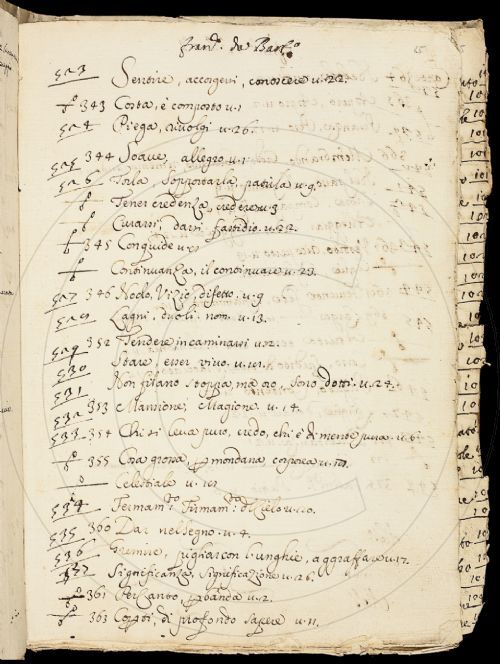 Franc.º da Barb.º
65
523 Sentire, accorgersi, conoscere v. 22.
fº 343 Costa, è composto v. 1
524 Piega, rivolgi v. 26.
525 344 Soave, allegro v. 1
526 Porla, Sopportarla, patirla v. 9.
fº Tener credenza, credere v. 3
fº Curarsi, darsi fastidio. v. 22.
fº 345 Conquide v.
fº Continuanza, il continuare v. 23.
527 346 Nodo, Vizio, difetto. v. 9
Lagni, duoli. nom. v. 13.
529 352 Tendere, incaminarsi v. 2.
530 Stare, esser vivo. v. 101.
531 Non pliano stoppa, ma Sono dotti. v. 24.
532 353 Mansione, Magione v. 14.
533 354 Chi si leva puro, credo, chi è di mente pura v. 6.
fº 355 Cosa grossa, mondana, corporea v.
Celestiale v. 101
534 Fermam.to Firmam.to del Cielo v.
535 360 Dar nel segno. v. 4.
536 Gremire, pigliar con l'unghie, aggraffare v. 17.
537 Significanza, Significazione v. 26.
fº 361 Persanto, v. 2.
fº 363 di profondo sapere v. 11.